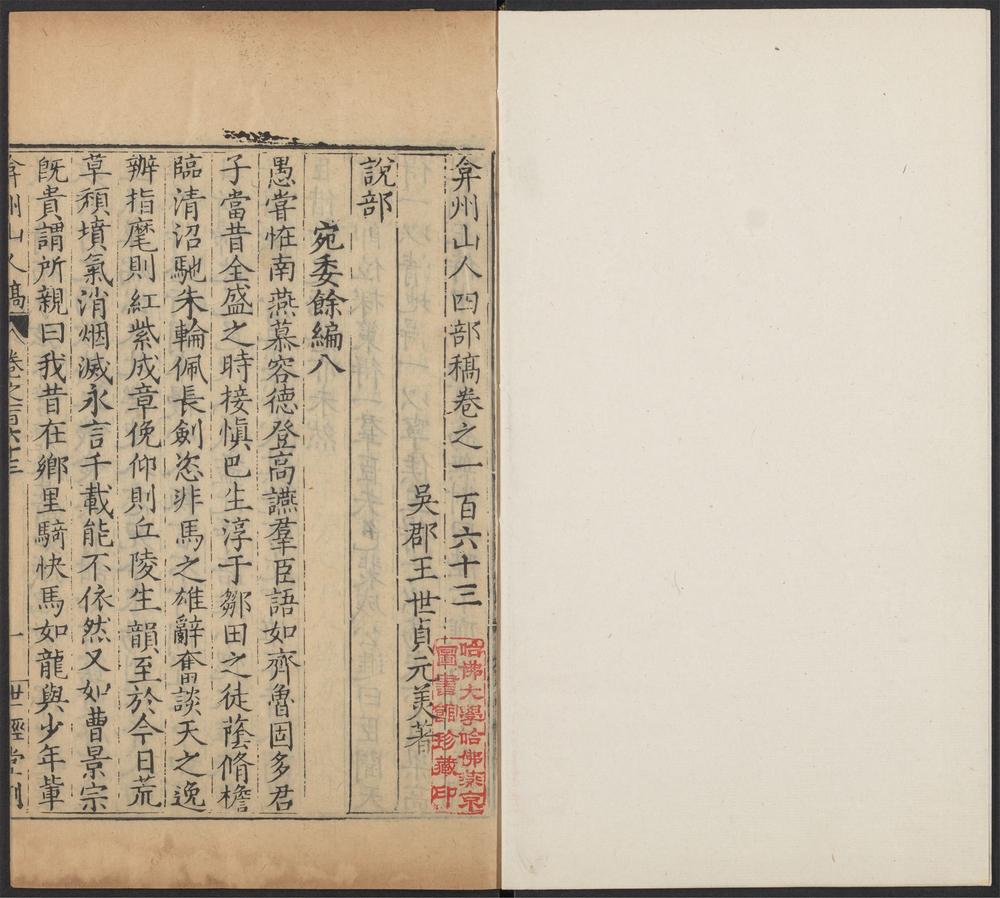 弇州山人四部稿卷之一百六十三
吳郡王世貞元美著
說部
宛委餘編八
愚嘗恠南燕慕容德登高讌羣臣語如齊魯固多君
子當昔全盛之時接愼巴生淳于鄒田之徒蔭脩檐
臨清沼馳朱輪佩長劍恣非馬之雄辭奮談天之逸
辦指麾則紅紫成章俛仰則丘陵生韻至於今日荒
草頹墳氣消烟滅永言千載能不依然又如曹景宗
旣貴謂所親曰我昔在鄉里騎快馬如龍與少年輩
弇州山人稿 卷之一百六十三 一 世經堂刻
哈佛大學哈佛燕京
圖書館珍藏印